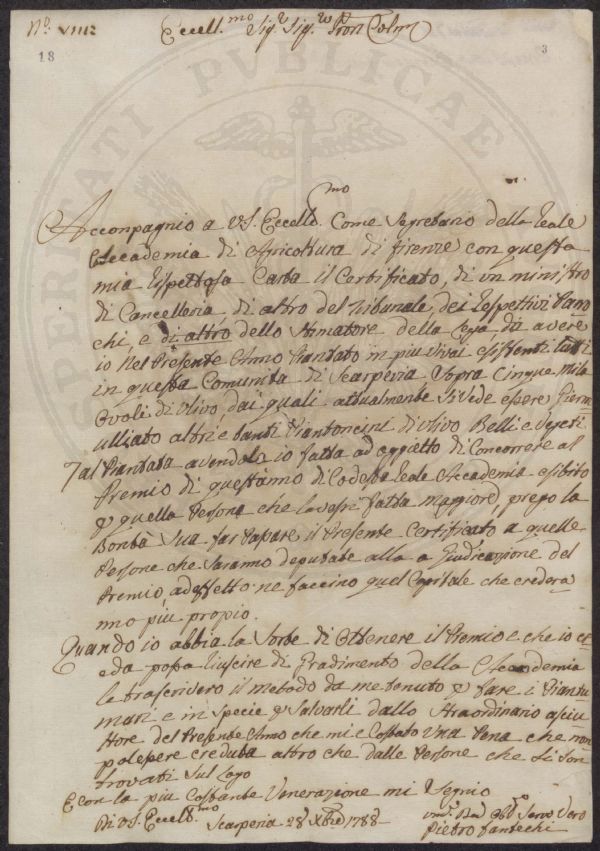 N.o VIIII
Eccell.mo Sig.r Sig.r Pron Colmo
18
3
PROSPERITATI PUBLICAE
Accompagnio a VS. Eccell.mo Come Segretario della Reale
Accademia di Agricoltura di firenze con questa
mia rispettosa Carta il Certificato, di un ministro
di Cancelleria, di altro del Tribunale, dei respettivi Paro
chi, e di altro dello Stimatore della Lega da avere
io Nel Presente Anno Piantato in piu vivai esistenti tutti
in questa Comunita di Scarperia Sopra Cinque mila
Ovoli di Ulivo dai quali attualmente Si vede essere Germo
ulliato altri e tanti Piantoncini di Ulivo Belli e vegeti
Tal Piantata avendola io fatta ad oggietto di Concorrere al
Premio di quest'anno di Codesta reale Accademia esibito
p quella Persona che lavessi fatta maggiore, prego la
Bontà Sua far Papare il Presente Certificato a quelle
Persone che Saranno deputate alla a Giudicazione del
Premio ad effetto ne faccino quel Capitale che credera
nno più propio.
Quando io abbia la Sorte di Ottenere il Premio e che io cr
eda possa riuscire di Gradimento della Accademia
le trascrivero il metodo da me tenuto p fare i Piantu
mari e in Specie p Salvarli dallo Straordinario asciu
ttore del Presente Anno che mi e Costato Una Pena che non
pol essere creduta altro che dalle Persone che Si Son
trovati Sul Logo
E con la più Costante Venerazione mi Segnio
Di VS. Eccell.mo
Scarperia 28 Xbre 1788
Um.o Dev.o Obb.o Servo Vero
Pietro fantechi